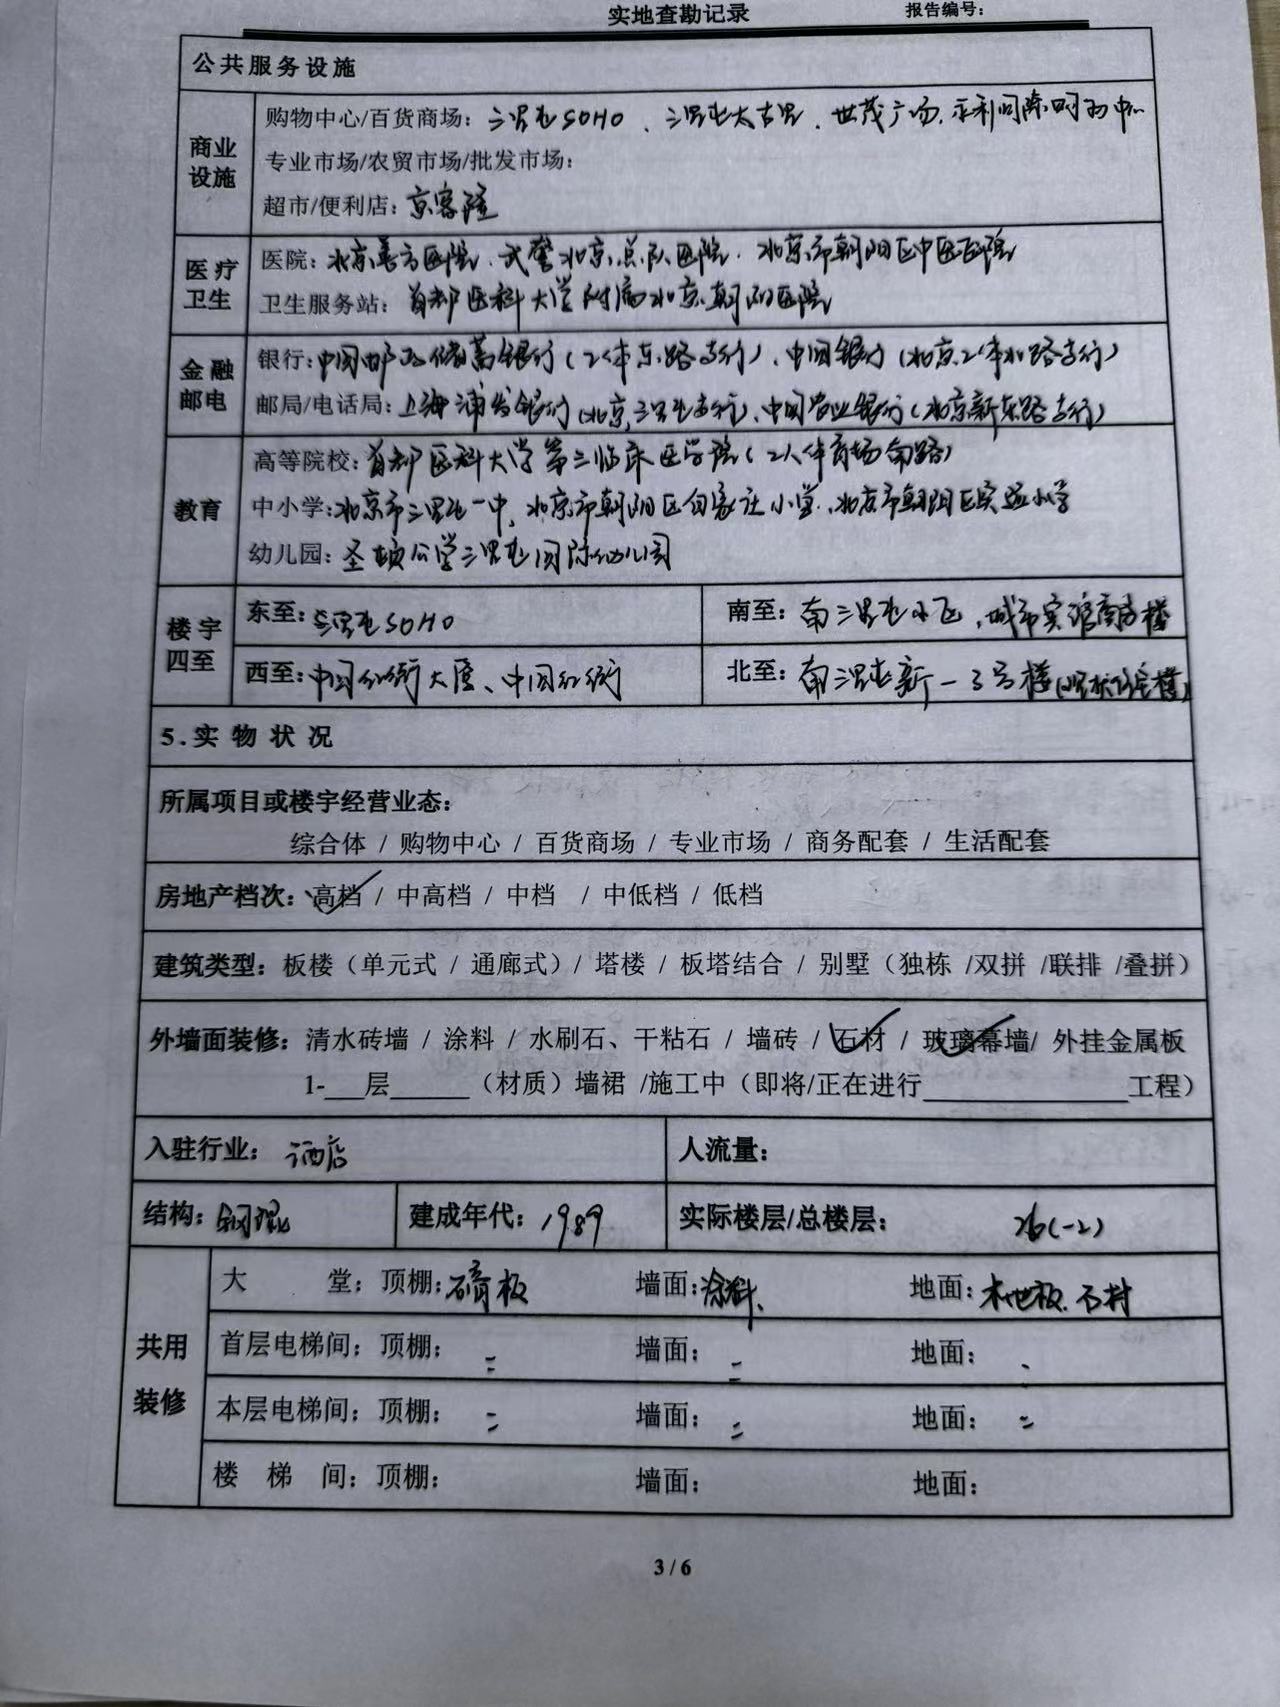 实地查勘记录 报告编号：
公共服务设施
商业设施
购物中心/百货商场：三里屯SOHO、三里屯太古里、世茂广场、永利国际购物中心
专业市场/农贸市场/批发市场：
超市/便利店：京客隆
医疗卫生
医院：北京善方医院、武警北京总队医院、北京市朝阳区中医医院
卫生服务站：首都医科大学附属北京朝阳医院
金融邮电
银行：中国邮政储蓄银行（工体东路支行）、中国银行（北京工体北路支行）
邮局/电话局：上海浦发银行（北京三里屯支行）、中国农业银行（北京新东路支行）
教育
高等院校：首都医科大学第三临床医学院（工人体育场南路）
中小学：北京市三里屯一中、北京市朝阳区白家庄小学、北京市朝阳区实验小学
幼儿园：圣顿公学三里屯国际幼儿园
楼宇四至
东至：三里屯SOHO 南至：南三里屯小区、城市宾馆商务楼
西至：中国红街大厦、中国红街 北至：南三里屯新一3号楼（现状住宅楼）
5.实物状况
所属项目或楼宇经营业态：
综合体 / 购物中心 / 百货商场 / 专业市场 / 商务配套 / 生活配套
房地产档次：高档 / 中高档 / 中档 / 中低档 / 低档
建筑类型：板楼（单元式 / 通廊式）/ 塔楼 / 板塔结合 / 别墅（独栋 /双拼 /联排 /叠拼）
外墙面装修：清水砖墙 / 涂料 / 水刷石、干粘石 / 墙砖 / 石材 / 玻璃幕墙/ 外挂金属板
1-___层______（材质）墙裙 /施工中（即将/正在进行________________工程）
入驻行业：酒店 人流量：
结构：钢混 建成年代：1989 实际楼层/总楼层：26(-2)
共用装修
大 堂：顶棚：石膏板 墙面：涂料、 地面：木地板、石材
首层电梯间：顶棚：= 墙面：= 地面：、
本层电梯间：顶棚：= 墙面：= 地面：=
楼 梯 间：顶棚： 墙面： 地面：
3 / 6